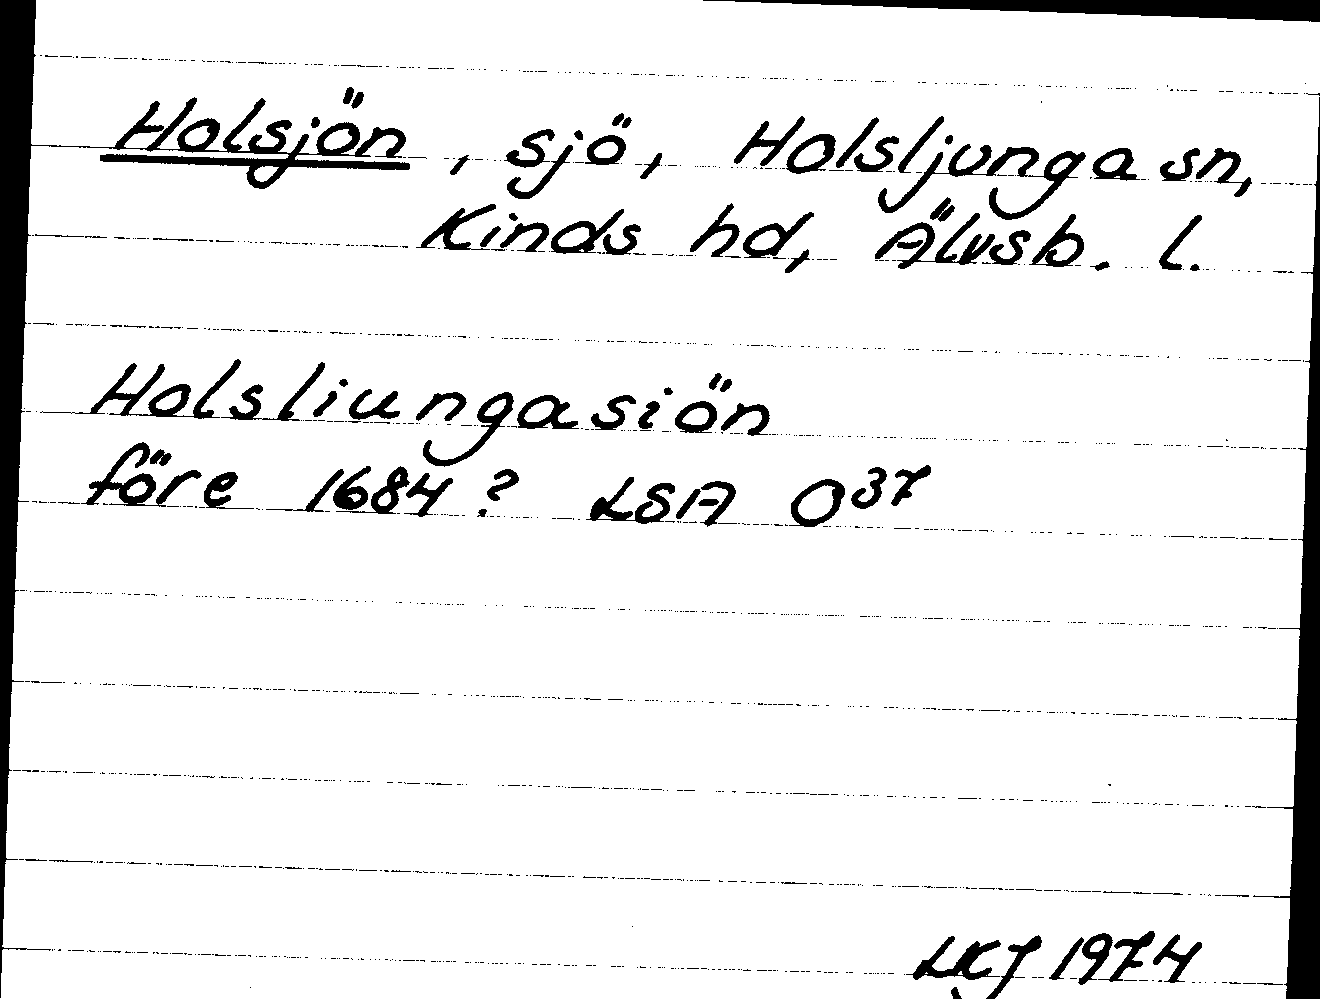 Holsjön, sjö, Holsljunga sn,
Kinds hd, Älvsb. l.
Holsliungasiön
före 1684? LSA O37
LKJ 1974